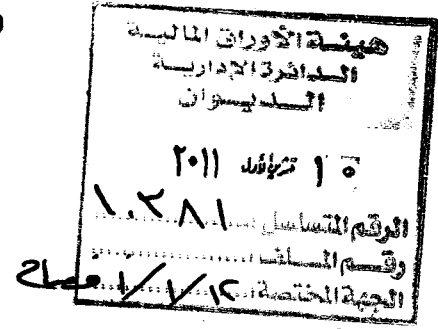 هيئة الأوراق المالية
الدائرة الإدارية
الديوان
١٥ تشرين الأول ٢٠١١
الرقم المتسلسل : ١٠٣٨١
رقم الملف
الجهة المختصة :